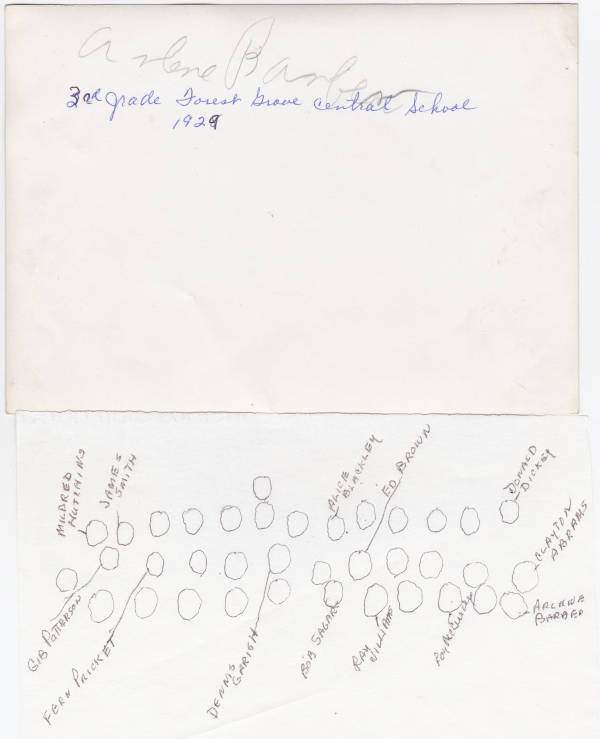 Arlene Barber
3rd grade Forest Grove Central School
1929
MILDRED
HUTCHINS
JAMES
SMITH
ALICE
BLACKLEY
ED BROWN
DONALD
DICKEY
CLAYTON
ABRAMS
ARLENE
BARBER
GIB PATTERSON
FERN PRICKET
DENNIS
GARISH
BOB SAGAR
RAY
WILLIAMS
ROY